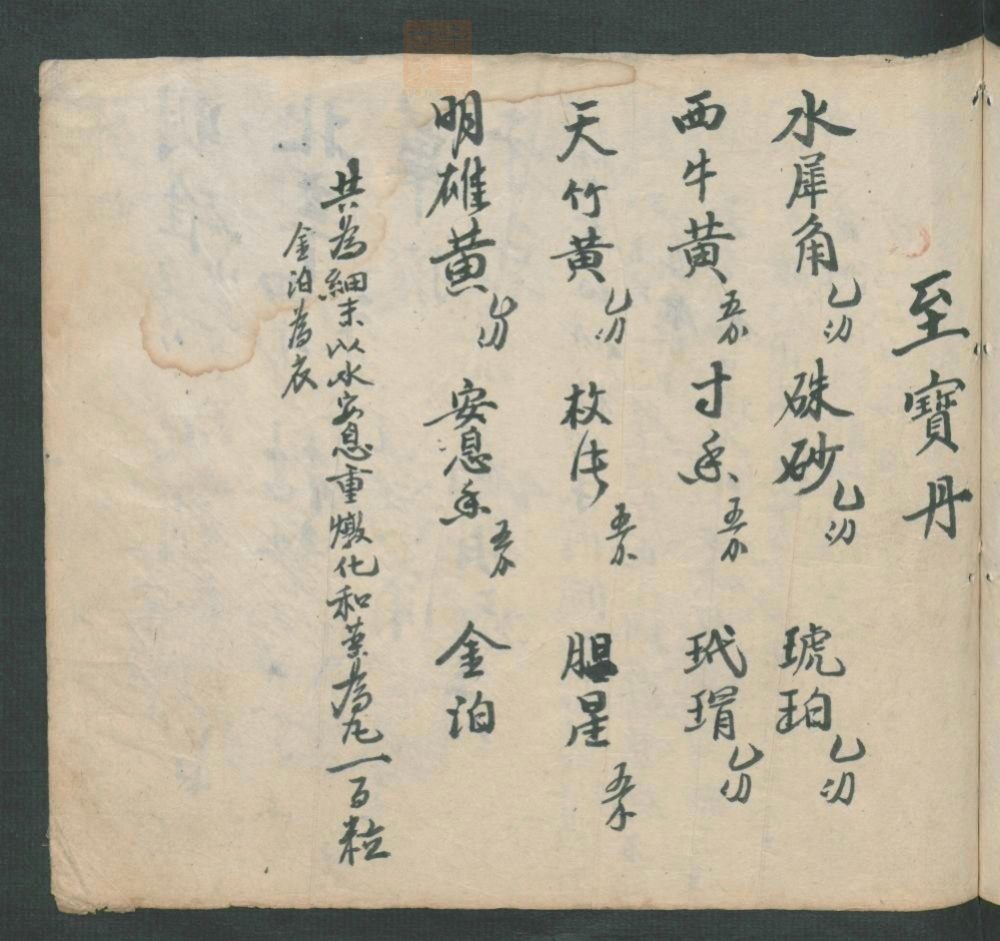 至寶丹
水犀角乙刃 硃砂乙刃 琥珀乙刃
西牛黃五分 寸香五分 玳瑁乙刃
天竹黃乙刃 枚片五分 胆星五分
明雄黃乙刃 安息香五分 金泊
共為細末以水安息重燉化和藥為丸一百粒
金泊為衣